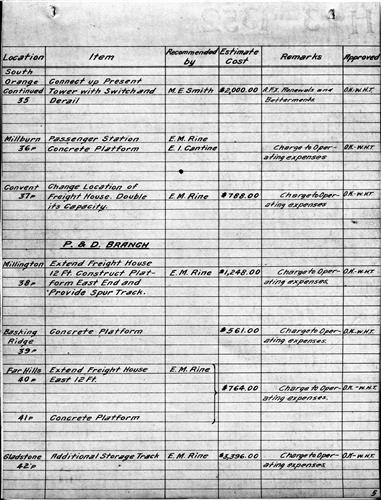 H-3-1052
Location Item Recommended by Estimate Cost Remarks Approved
South
Orange Connect up Present
Continued Tower with Switch and M.E. Smith $2,000.00 Renewals and O.K.-W.H.T.
35 Derail Betterments
Millburn Passenger Station E.M. Rine
36P Concrete Platform E.I. Cantine Charge to Oper- O.K.-W.H.T.
ating expenses
Convent Change Location of
37P Freight House. Double E.M. Rine $788.00 Charge to Oper- O.K.-W.H.T.
its Capacity. ating expenses
P. & D. BRANCH
Millington Extend Freight House
12 Ft. Construct Plat- E.M. Rine $1,248.00 Charge to Oper- O.K.-W.H.T.
38P form East End and ating expenses.
Provide Spur Track.
Basking Concrete Platform $561.00 Charge to Oper- O.K.-W.H.T.
Ridge ating expenses.
39P
Far Hills Extend Freight House E.M. Rine
40P East 12 Ft.
$764.00 Charge to Oper- O.K.-W.H.T.
ating expenses.
41P Concrete Platform
Gladstone Additional Storage Track E.M. Rine $3,396.00 Charge to Oper- O.K.-W.H.T.
42P ating expenses.
5